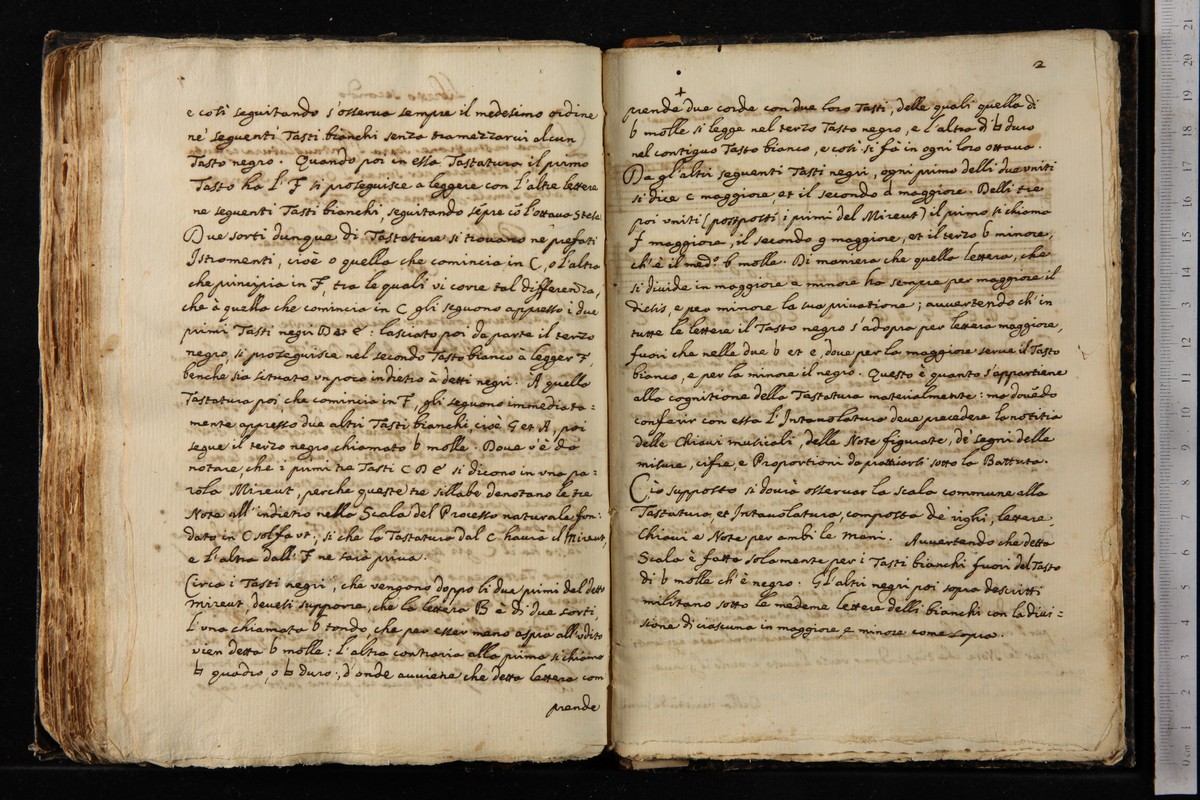 e così seguitando s'osserva sempre il medesimo ordine
nè seguenti Tasti bianchi senza tramezzarvi alcun
Tasto negro. Quando poi in essa Tastatura il primo
Tasto ha l'F si proseguisce a leggere con l'altre lettere
ne seguenti Tasti bianchi, seguitando sépre có l'ottava
Due sorti dunque di Tastature si trovano nè prefati
Istromenti, cioè o quella che comincia in C, o l'altra
che principia in F tra le quali vi corre tal differenza,
che à quella che comincia in C gli seguono appresso i due
primi Tasti negri D et E: lasciato poi da parte il terzo
negro, si proseguisce nel secondo Tasto bianco à legger F,
benche sia situato un poco indietro à detti negri. A quella
Tastatura poi che comincia in F, gli seguono immediata=
mente appresso due altri Tasti bianchi, cioè G et A, poi
segue il terzo negro chiamato b molle. Dove s'è da
notare che i primi tre Tasti C D E si dicono in una pa=
rola Mireut, perche queste tre sillabe denotano le tre
Note all'indietro nella Scala del Processo naturale fon=
dato in C solfa ut; si che la Tastatura dal C havrà il Mireut,
e l'altra dall'F ne sarà priva.
Circa i Tasti negri, che vengono doppo li dua primi del detto
Mireut, devesi supporre, che la lettera B è di due sorti,
l'una chiamata b tondo, che per esser meno aspra all'udito
vien detta b molle: l'altra contraria alla prima si chiama
♮ quadro, o ♮ duro; d'onde avviene che detta lettera com
prende
2
prende due corde con due loro Tasti, delle quali quella di
b molle si legge nel terzo Tasto negro, e l'altra di ♮ duro
nel contiguo Tasto bianco, e così si fà in ogni loro ottava.
Da gl'altri seguenti Tasti negri, ogni primo delli due uniti
si dice c maggiore, et il secondo d maggiore. Delli tre
poi uniti (posposti i primi del Mireut) il primo si chiama
f maggiore, il secondo g maggiore, et il terzo b minore,
ch'è il med.º b molle. Di maniera che quella lettera, che
si divide in maggiore e minore ha sempre per maggiore il
diesis, e per minore la sua privatione; avvertendo ch'in
tutte le lettere il Tasto negro s'adopra per lettera maggiore,
fuori che nelle due b et e, dove per la maggiore serve il Tasto
bianco, e per la minore il negro. Questo è quanto s'appartiene
alla cognitione della Tastatura materialmente: ma dovédo
conferir con essa l'Intavolatura deve precedere la notitia
delle Chiavi musicali, delle Note figurate, dè segni delle
misure, cifre, e Proportioni da pratticarsi sotto la Battuta.
Ciò supposto si dovrà osservar la scala commune alla
Tastatura, et Intavolatura, composta dè righi, lettere,
Chiavi e Note per ambi le mani. Avvertendo che detta
Scala è fatta solamente per i Tasti bianchi fuori del Tasto
di b molle ch'è negro. Gl'altri negri poi sopra descritti
militano sotto le medeme lettere delli bianchi con la divi=
sione di ciascuna in maggiore e minore come sopra.